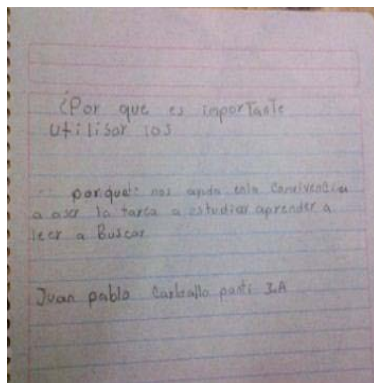 ¿Por que es importante
utilisar los
porque: nos ayuda en la Convivencia
a aser la tarea a estudiar aprender a
leer a Buscar
Juan pablo Carballo 3.A